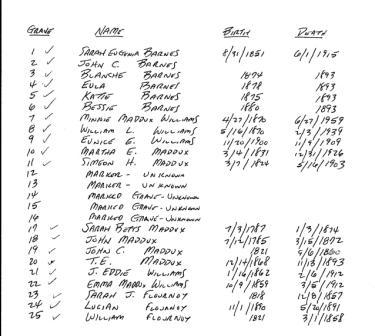 GRAVE NAME BIRTH DEATH
1 ✓ SARAH EUGENIA BARNES 8/31/1851 6/1/1915
2 ✓ JOHN C. BARNES
3 ✓ BLANCHE BARNES 1874 1893
4 ✓ EULA BARNES 1878 1893
5 ✓ KATIE BARNES 1875 1893
6 ✓ BESSIE BARNES 1880 1893
7 ✓ MINNIE MADDUX WILLIAMS 4/27/1870 6/27/1959
8 ✓ WILLIAM L. WILLIAMS 5/16/1870 2/3/1939
9 ✓ EUNICE E. WILLIAMS 11/20/1900 11/9/1909
10 ✓ MARTHA E. MADDUX 3/14/1831 12/31/1926
11 ✓ SIMEON H. MADDUX 3/7/1824 5/16/1903
12 MARKER - UNKNOWN
13 MARKER - UNKNOWN
14 MARKED GRAVE - UNKNOWN
15 MARKED GRAVE - UNKNOWN
16 MARKED GRAVE - UNKNOWN
17 ✓ SARAH BETTS MADDUX 7/3/1787 1/3/1874
18 ✓ JOHN MADDUX 7/12/1785 3/15/1872
19 ✓ JOHN C. MADDUX 1821 5/6/1860
20 T.E. MADDUX 12/14/1868 1/13/1893
21 ✓ J. EDDIE WILLIAMS 1/16/1862 2/6/1912
22 ✓ EMMA MADDUX WILLIAMS 10/9/1859 3/5/1912
23 ✓ SARAH J. FLOURNOY 1818 12/8/1857
24 ✓ LUCIAN FLOURNOY 11/1/1890 5/20/1891
25 ✓ WILLIAM FLOURNOY 1821 3/1/1858